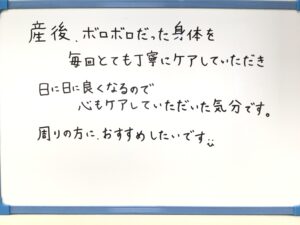 産後、ボロボロだった身体を
毎回とても丁寧にケアしていただき
日に日に良くなるので
心もケアしていただいた気分です。
周りの方に、おすすめしたいです